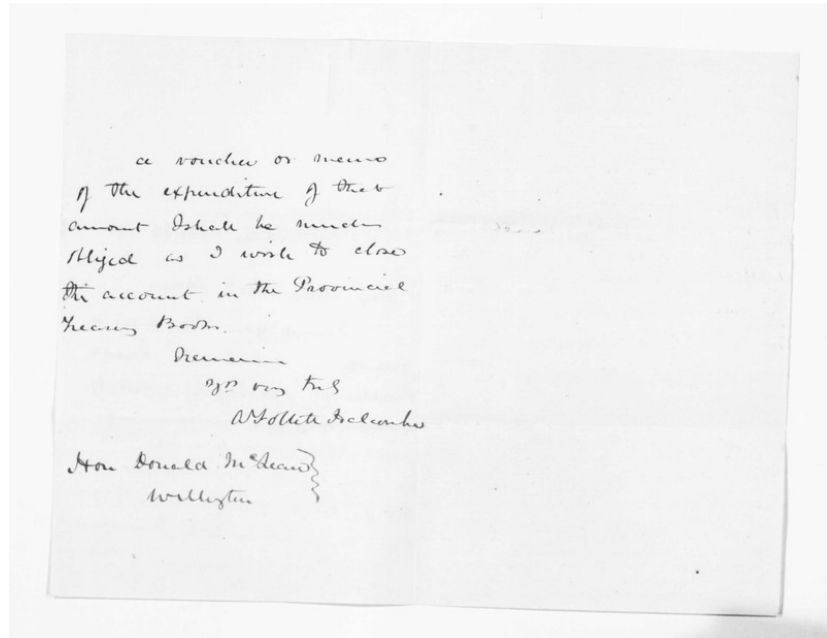 a voucher or memo
of the expenditure of that
amount I shall be much
obliged as I wish to close
the account in the Provincial
Treasury Books.
I remain
Yrs very truly
A Follett Halcombe
Hon Donald McLean
Wellington